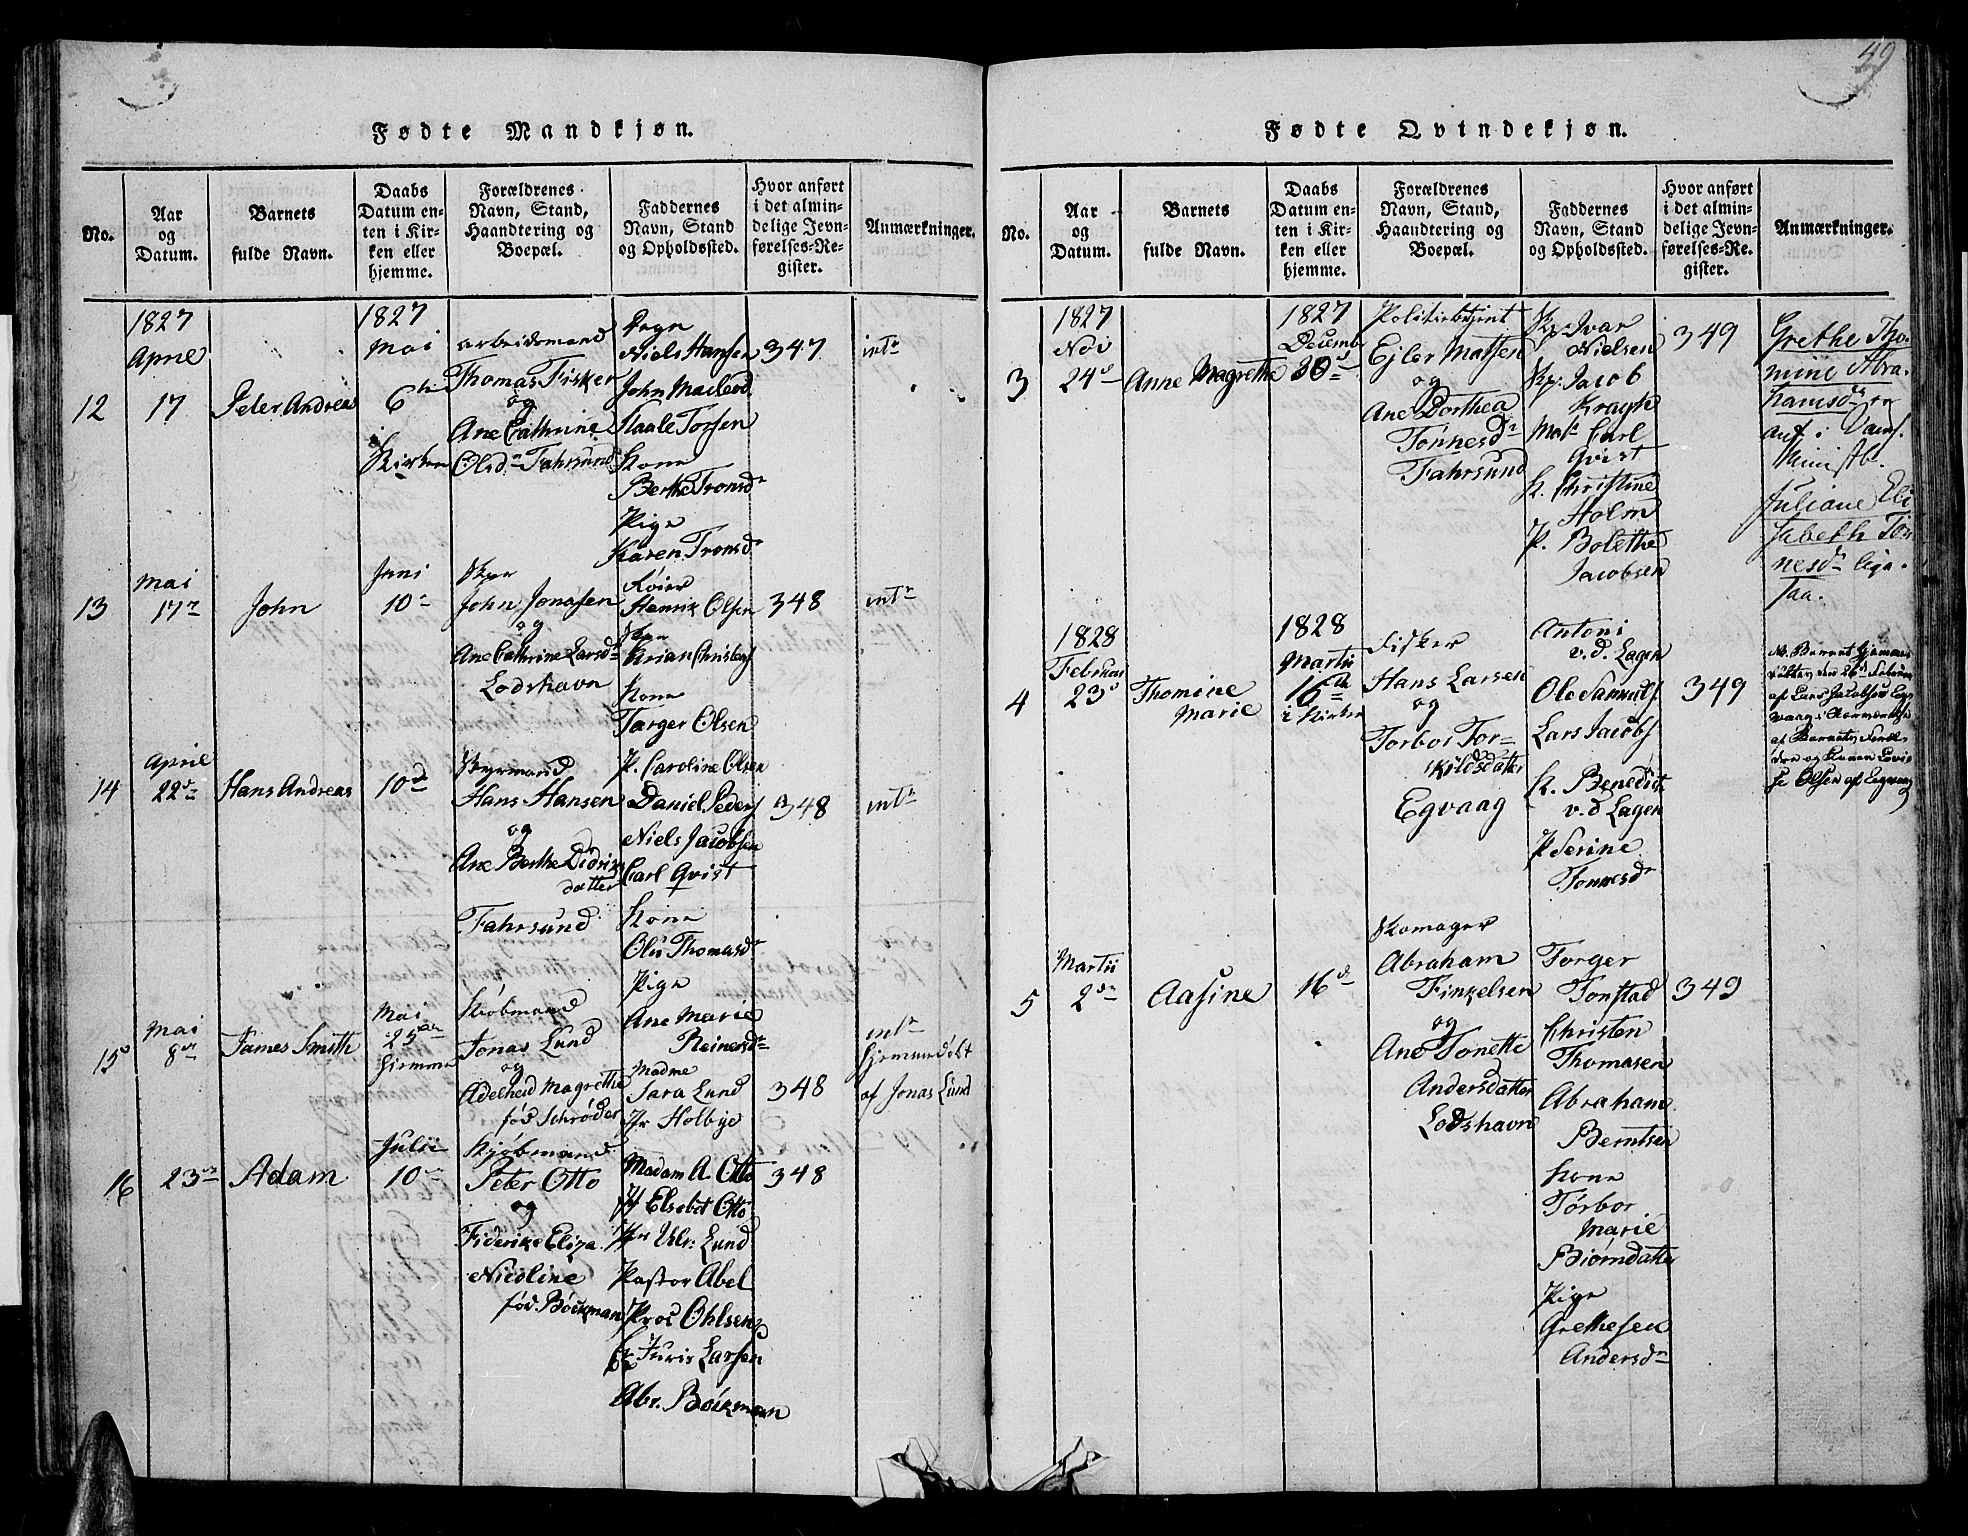 49
Fødte Mandkjøn.
No.
Aar
og
Datum.
Barnets
fulde Navn.
Daabs
Datum en-
ten i Kir-
ken eller
hjemme.
Forældrenes
Navn, Stand,
Haandtering og
Boepæl.
Faddernes
Navn, Stand
og Opholdssted.
Hvor anført
i det almin-
delige Jevn-
førelses-Re-
gister.
Anmærkninger.
12
1827
Aprie
17
Peter Andrea
1827
Mai
6te
i
Kirken
Arbeidsmand
Thomas Fisker
og
Ane Cathrine
Olsd. Fahrsund
Niels Hansen
John Macleod
Staale Torsen
Kone
Berthe Tronsdr
Pige
Karen Tronsdr
347
intr
13
Mai
17
John
Juni
10
Skpr
John Jonassen
og
Ane Cathrine Larsd
Lodshavn
Henrik Olsen
Skpr
Arian Chrisbers
Kone
Targer Olsen
P. Caroline Olsen
348
intr
14
Aprie
22
Hans Andreas
10
Styrmand
Hans Hansen
og
Ane Berthe Didrix
datter
Fahrsund
Daniel Peders
Niels Jacobsen
Carl Qvist
Kone
Oliv Thomasdr
Pige
Ane Marie
Reinersd
348
intr
15
Mai
8
James Smith
Mai
25
hiemme
Kiøbmand
Jonas Lund
og
Adelheid Magrethe
fød Schrøder
Madme
Sara Lund
Jfr Holbye
348
intr
hiemmedøbt
af Jonas Lund
16
23
Adam
Julii
10
Kjøbmand
Peter Otto
og
Fiderike Eliza
Nicoline
fød. Böckman
Madam A. Otto
Jf Elsebet Otto
Lund
Pastor Abel
Proc Ohlsen
Juris Larsen
Abr. Böckmann
348
Fødte Qvindekjøn.
No.
Aar
og
Datum.
Barnets
fulde Navn.
Daabs
Datum en-
ten i Kir-
ken eller
hjemme.
Forældrenes
Navn, Stand,
Haandtering og
Boepæl.
Faddernes
Navn, Stand
og Opholdssted.
Hvor anført
i det almin-
delige Jevn-
førelses-Re-
gister.
Anmærkninger.
3
1827
Nov
24
Anne Magrethe
1827
Decemb
30
Politiebetjent
Ejler Matsen
og
Ane Dorthea
Tönnesdr
Fahrsund
Skp. Ivar
Nielsen
Skp. Jacob
Mat. Carl
Qvist
K. Christine
Holm
P. Bolethe
Jacobsen
349
Grethe Tho-
mine Abra-
hamsdr er
anf. i
Ministb.
Juliane Eli-
sabeth Tön-
nesdr liga-
saa.
4
1828
Februar
23
Thomine
Marie
1828
Martii
16
i Kirken
Fisker
Hans Larsen
og
Torbor Tor-
skildsdatter
Egvaag
Antoni
v.d. Lagen
Ole Samuels
Lars Jacobs
K. Benedict
v.d Lagen
P Serine
Tönnesdr
349
Nb. Barnet hjemme
døbtes den 26d Februar
af Lars Jacobsen Eg-
vaag i Nærværelse
af Barnets Forel-
dre og Karen Lovi-
se Olsen af Egvaag
5
Martii
2
Aasine
16
Skomager
Abraham
Finkelsen
og
Ane Tonette
Andersdatter
Lodshavn
Torger
Tonstad
Christen
Thomasen
Abraham
Berntsen
Kone
Törbor
Marie
Biörndatter
Pige
Grethesen
Andersdr
349